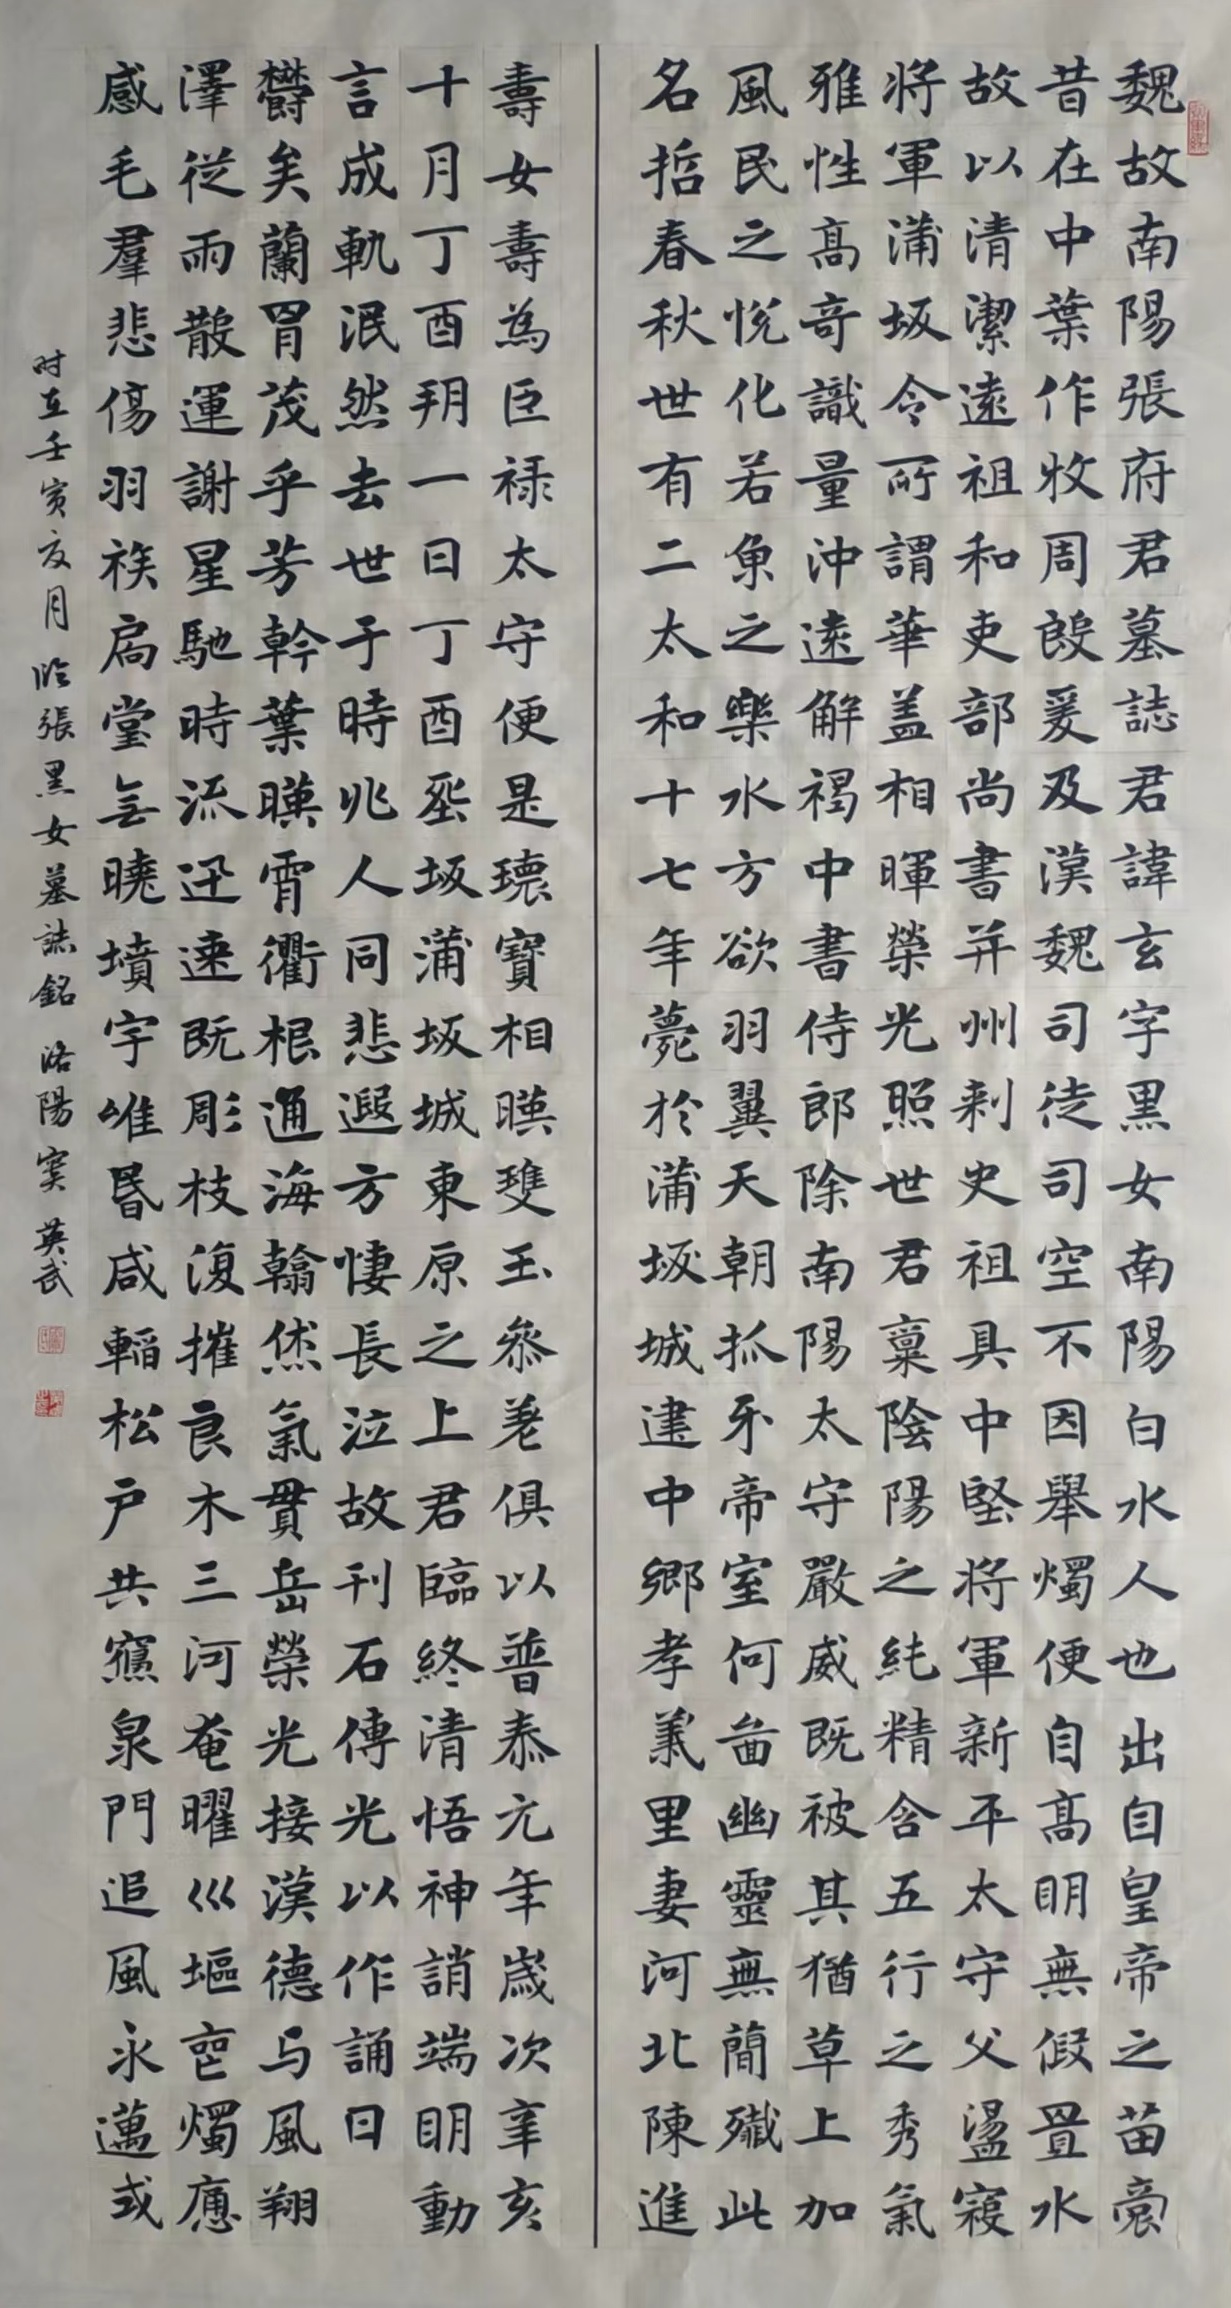 魏故南陽張府君墓誌君諱玄字黑女南陽白水人也出自皇帝之苗裔
昔在中葉作牧周殷爰及漢魏司徒司空不因舉燭便自高明無假置水
故以清潔遠祖和吏部尚書并州刺史祖具中堅將軍新平太守父盪寇
將軍蒲坂令所謂華蓋相暉榮光照世君稟陰陽之純精含五行之秀氣
雅性高奇識量沖遠解褐中書侍郎除南陽太守嚴威既被其猶草上加
風民之悅化若魚之樂水方欲羽翼天朝抓牙帝室何啚幽靈無簡殲此
名哲春秋世有二太和十七年薨於蒲坂城建中鄉孝義里妻河北陳進
壽女壽為巨祿太守便是瓌寶相暎瓊玉參差俱以普泰元年歲次辛亥
十月丁酉朔一日丁酉丞坂蒲坂城東原之上君臨終清悟神誚端明動
言成軌泯然去世于時兆人同悲遐方悽長泣故刊石傳光以作誦曰
欝矣蘭胄茂乎芳幹葉暎霄衢根通海翰烋氣貫岳榮光接漢德与風翔
澤從雨散運謝星馳時流迅速既彫枝復摧良木三河奄曜巛堰㐫燭應
感毛群悲傷羽族扃堂無曉墳宇唯昏咸輼松戶共寱泉門追風永邁或
时在壬寅亥月临張黑女墓誌銘 洛陽 英武